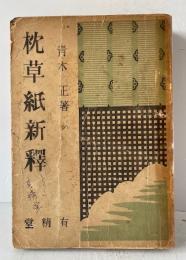 青木正著
枕草紙新釋
有精堂